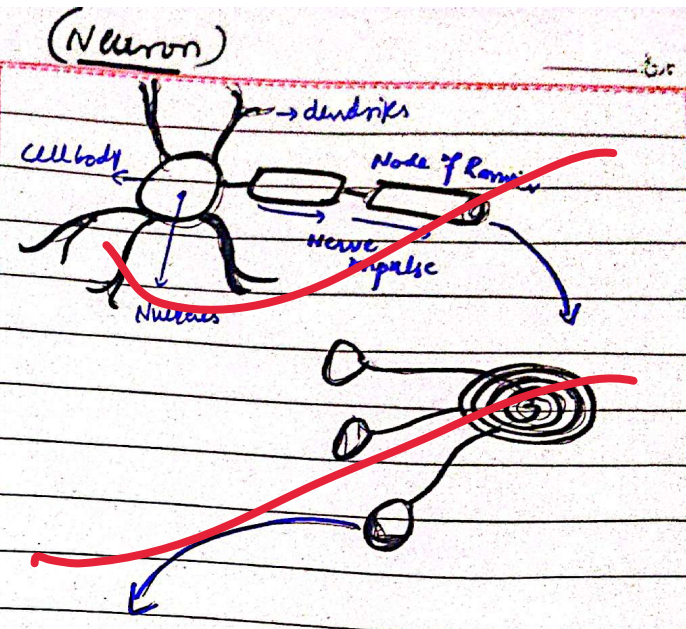 (Neuron)
dendrites
Cell body
Node of Ranvier
Nerve
impulse
Nucleus